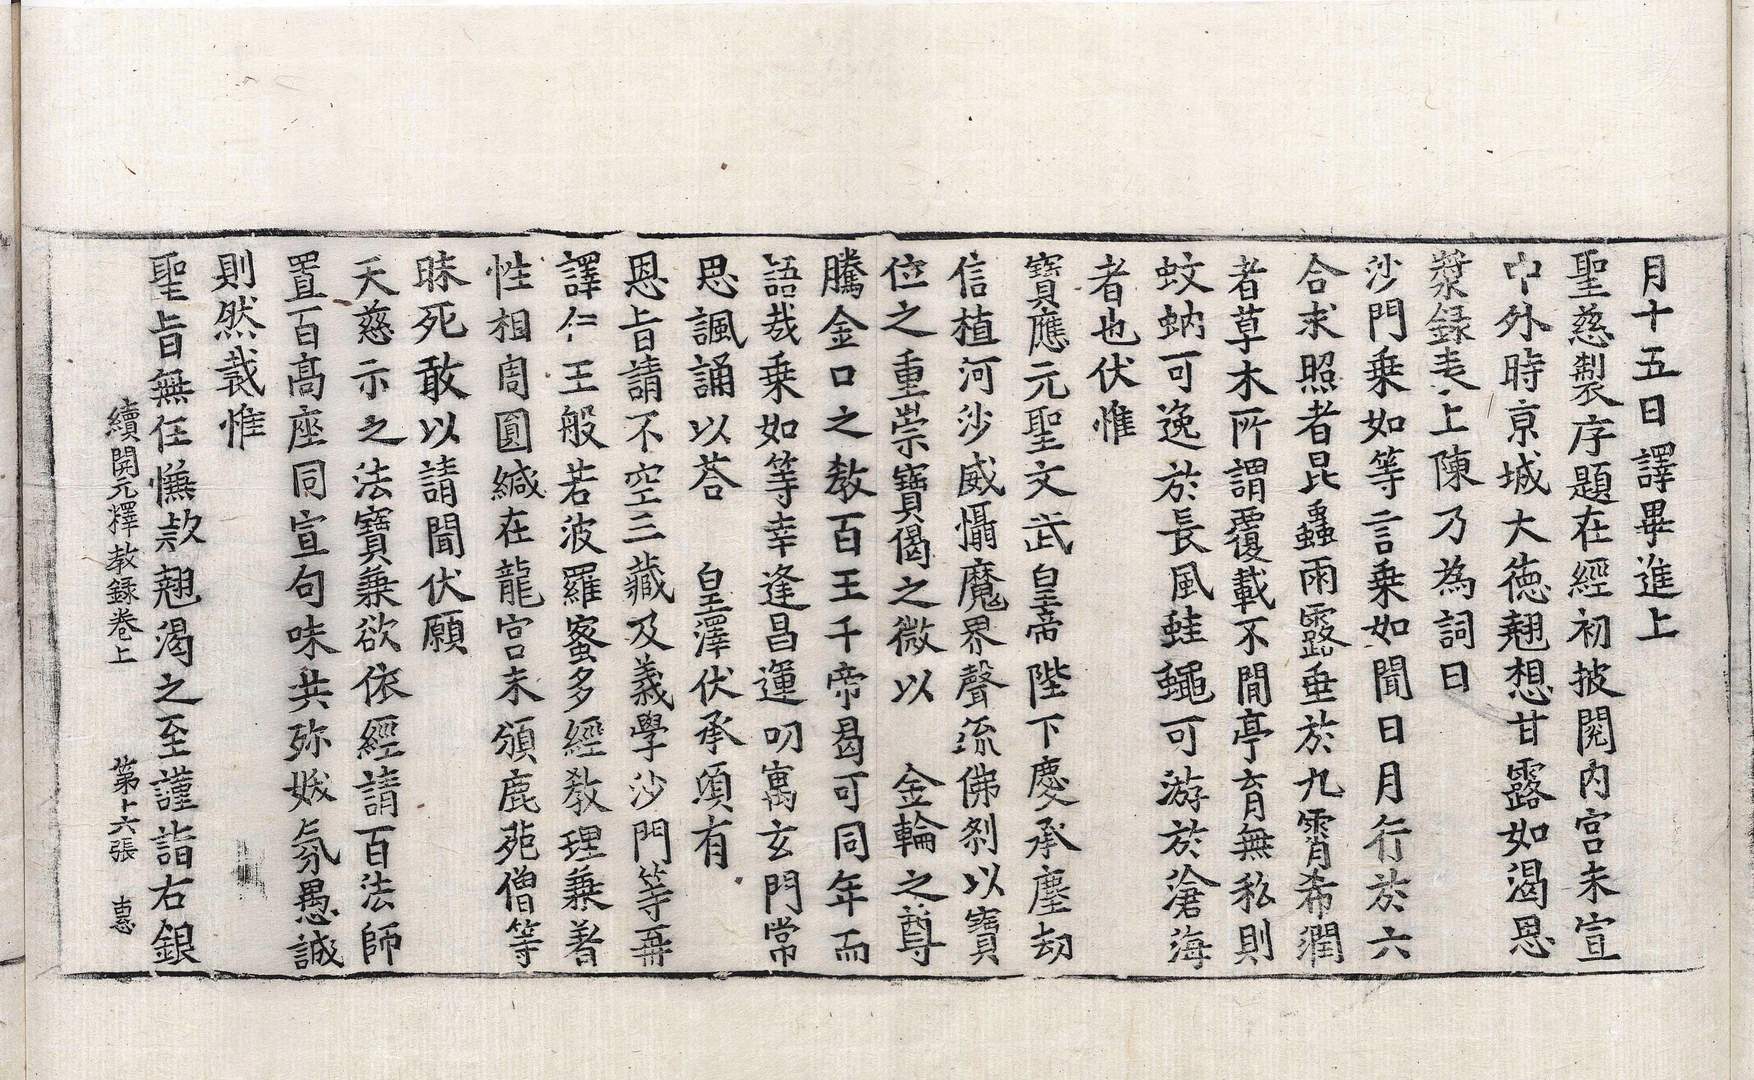 月十五日譯畢進上
聖慈製序題在經初披閱内宫未宣
中外時京城大德翹想甘露如渴思
漿録表上陳乃為詞曰
沙門乗如等言乗如聞日月行於六
合求照者昆蟲雨露垂於九霄希潤
者草木所謂覆載不閒亭育無私則
蚊蚋可逸於長風蛙蠅可游於滄海
者也伏惟
寶應元聖文武皇帝陛下慶承塵劫
信植河沙威懾魔界聲流佛刹以寶
位之重崇寶偈之微以 金輪之尊
騰金口之教百王千帝曷可同年而
語哉乗如等幸逢昌運叨寓玄門常
思諷誦以荅 皇澤伏承頃有
恩旨請不空三藏及義學沙門等再
譯仁王般若波羅蜜多經教理兼著
性相周圓緘在龍宫未頒鹿苑僧等
昧死敢以請聞伏願
天慈示之法寶兼欲依經請百法師
置百高座同宣句味共弥妖氛愚誠
則然裁惟
聖旨無任慊款翹渇之至謹詣右銀
續開元釋教録卷上 第十六張